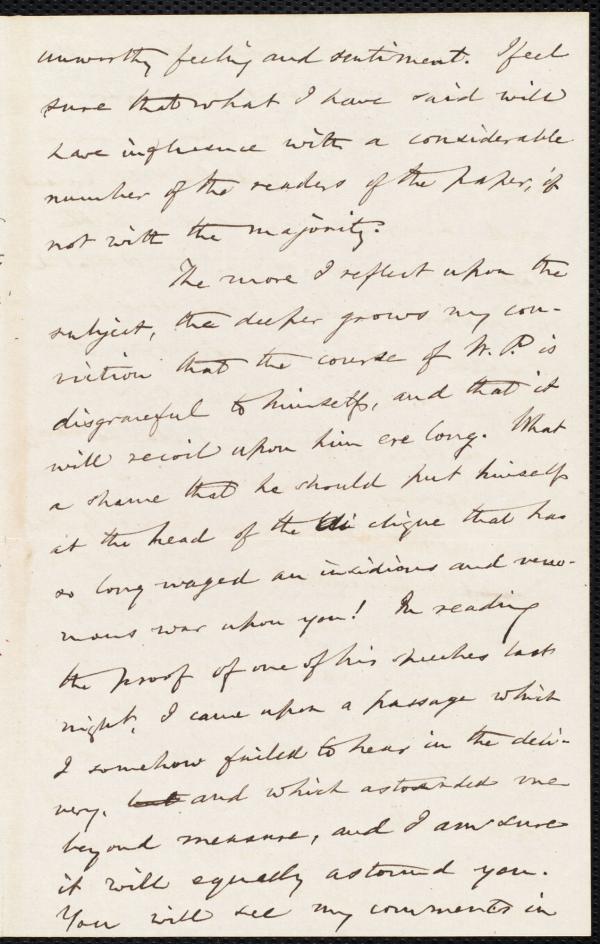 unworthy feeling and sentiment. I feel
sure that what I have said will
have influence with a considerable
number of the readers of the paper, if
not with the majority.
The more I reflect upon the
subject, the deeper grows my con-
viction that the course of W. P. is
disgraceful to himself, and that it
will recoil upon him ere long. What
a shame that he should put himself
at the head of the clique that has
so long waged an insidious and veno-
mous war upon you! In reading
the proof of one of his speeches last
night, I came upon a passage which
I somehow failed to hear in the deli-
very, but and which astounded me
beyond measure, and I am sure
it will equally astound you.
You will see my comments in